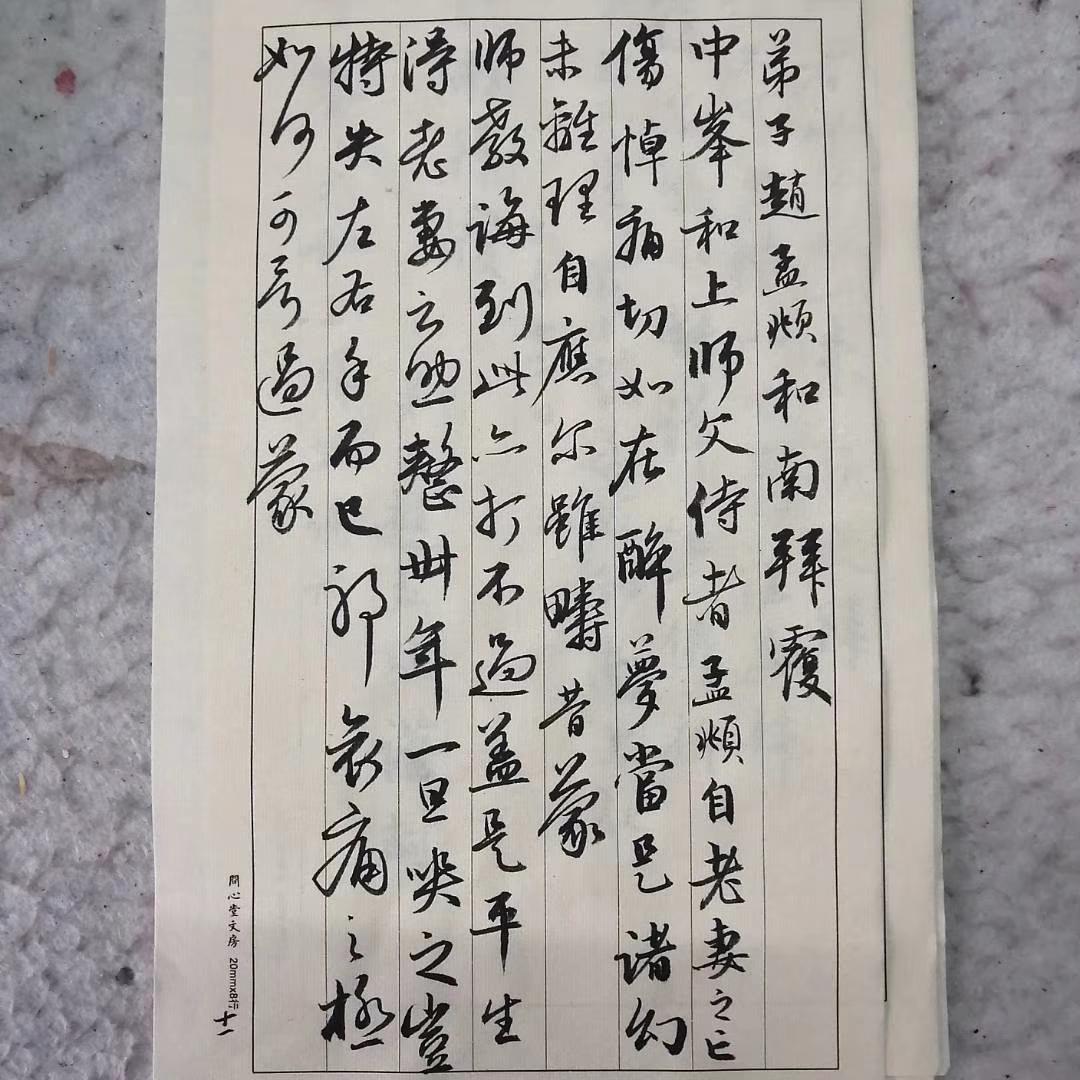 弟子趙孟頫和南拜覆
中峯和上師父侍者孟頫自老妻之亡
傷悼痛切如在醉夢當是諸幻
未離理自應尔雖疇昔蒙
師教誨到此亦打不過盖是平生
得老妻之助整卅年一旦哭之豈
特失左右手而已耶哀痛之極
如何可言過蒙
問心堂文房 20mmx8行
十一